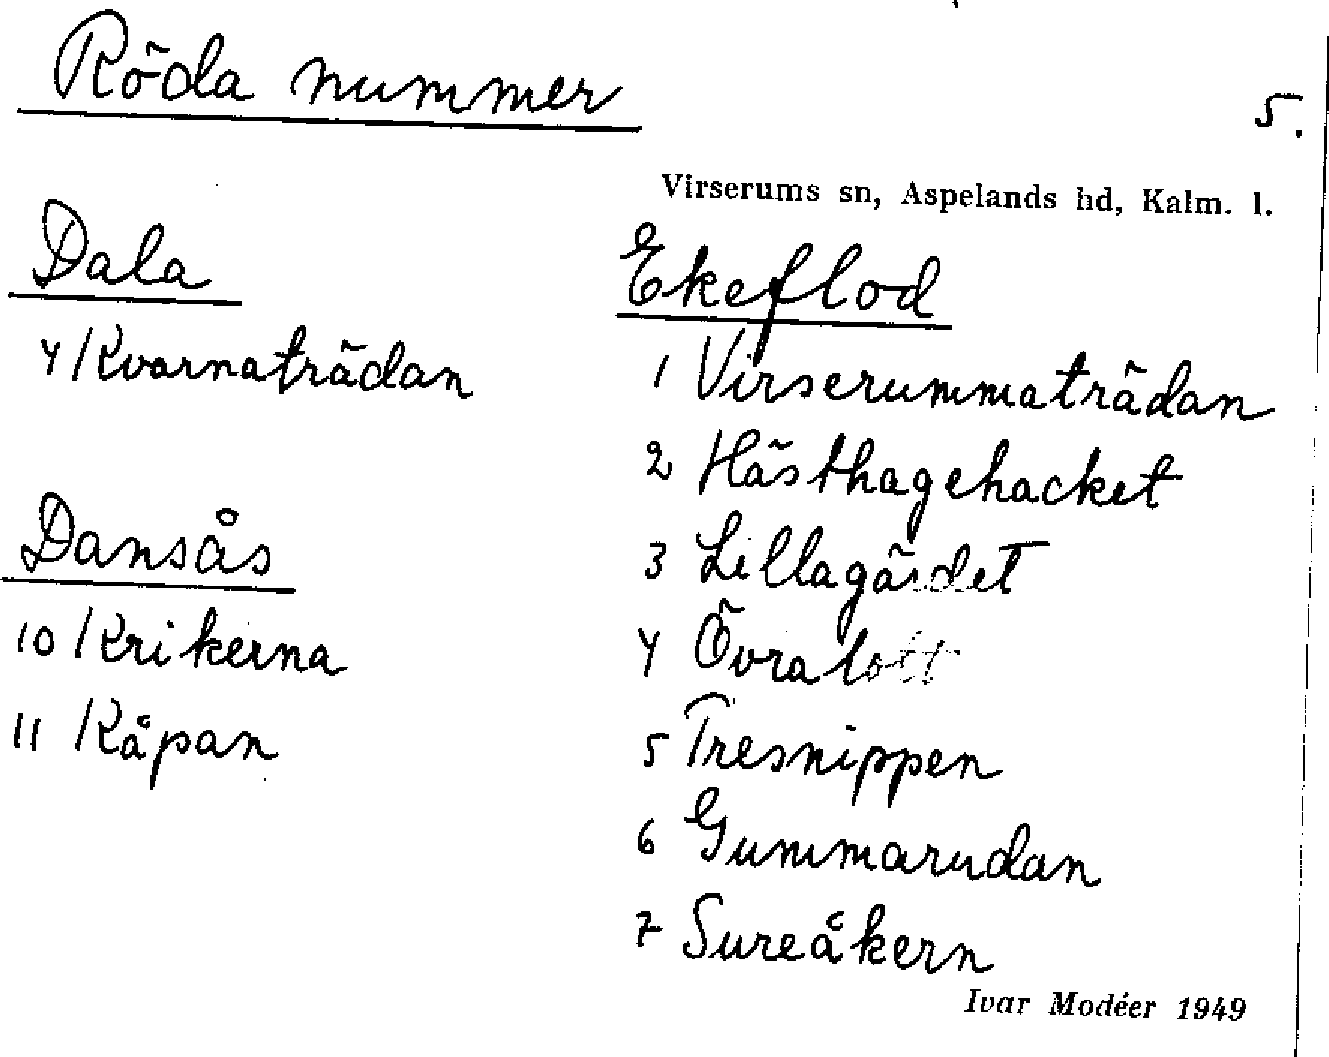 Röda nummer
5.
Virserums sn, Aspelands hd, Kalm. l.
Dala
4 Kvarnaträdan
Dansås
10 Krikerna
11 Kåpan
Ekeflod
1 Virserummaträdan
2 Hästhagehacket
3 Lillagärdet
4 Övralott
5 Tresnippen
6 Gummarudan
7 Sureåkern
Ivar Modéer 1949